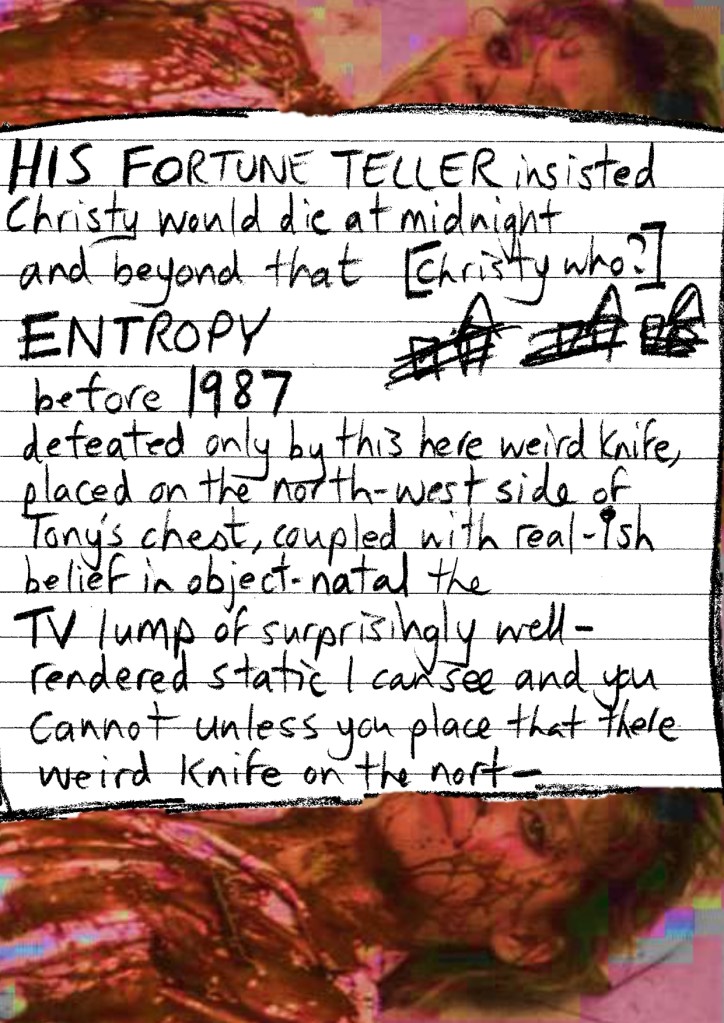 HIS FORTUNE TELLER insisted
Christy would die at midnight
and beyond that [Christy who?]
ENTROPY
before 1987
defeated only by this here weird knife,
placed on the north-west side of
Tony's chest, coupled with real-ish
belief in object-natal the
TV lump of surprisingly well-
rendered static I can see and you
cannot unless you place that there
weird knife on the nort-